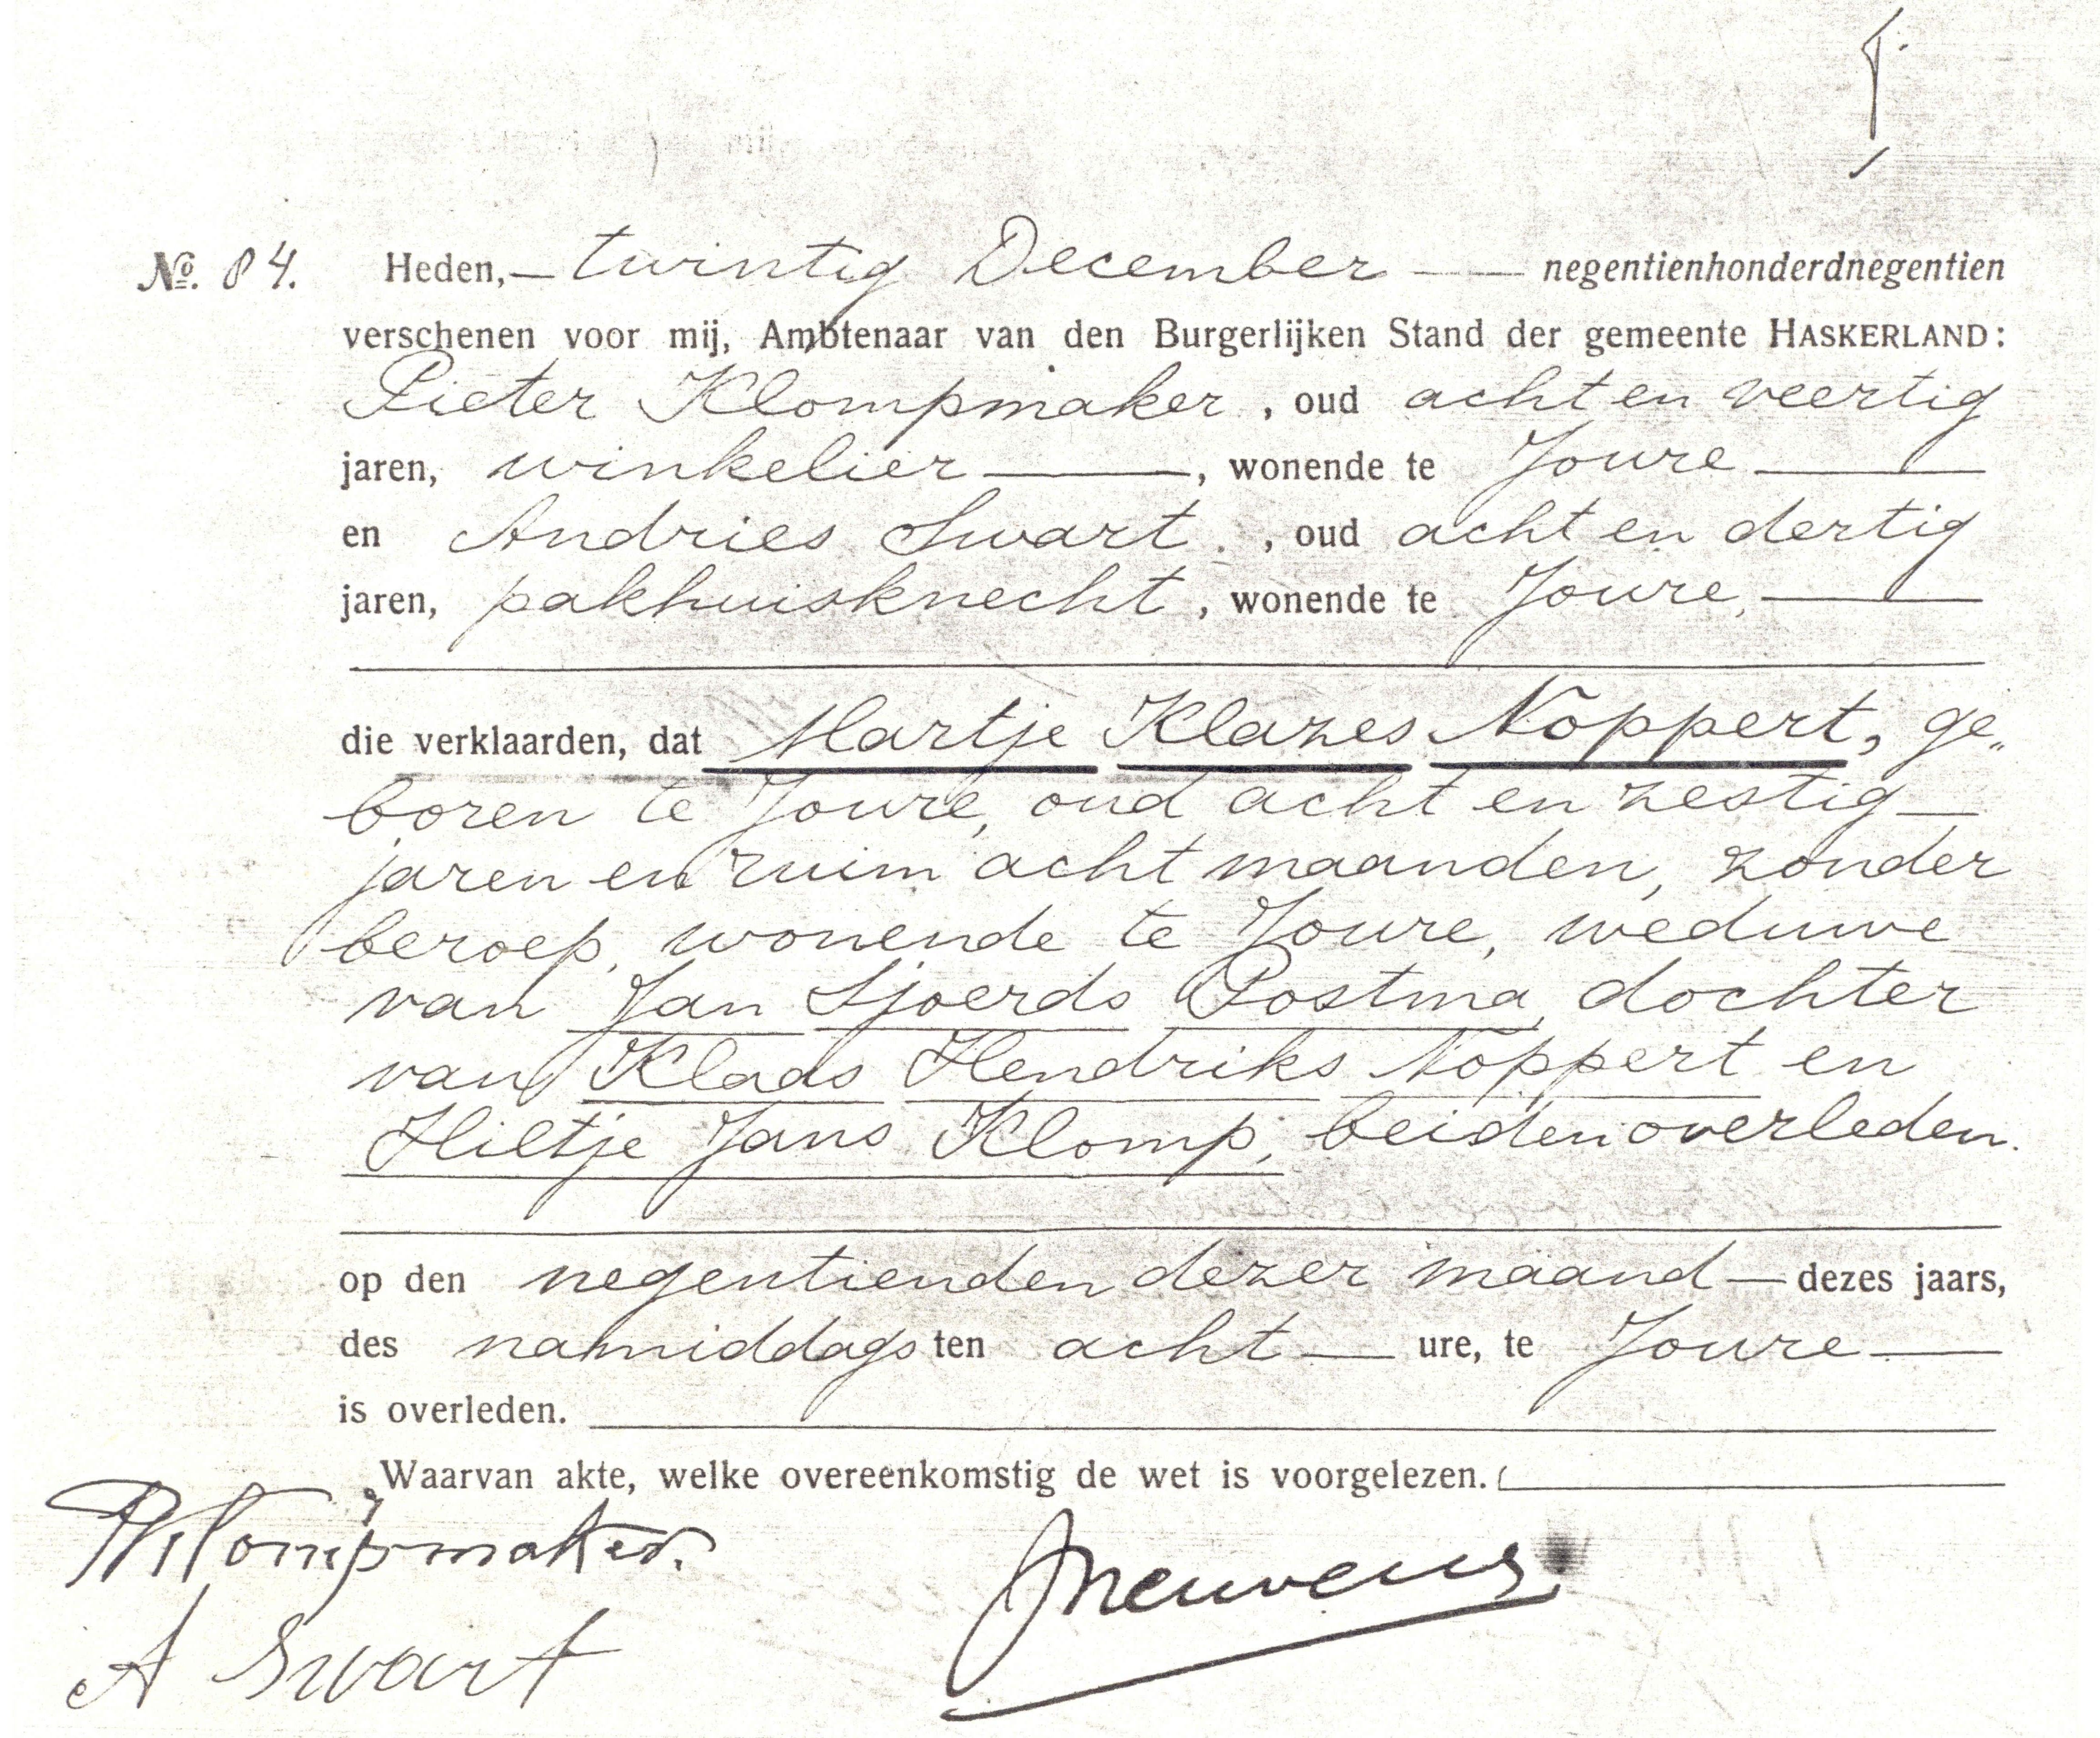 No. 84. Heden, twintig December negentienhonderdnegentien
verschenen voor mij, Ambtenaar van den Burgerlijken Stand der gemeente HASKERLAND:
Pieter Klompmaker, oud acht en veertig
jaren, winkelier, wonende te Joure
en Andries Swart, oud acht en dertig
jaren, pakhuisknecht, wonende te Joure,
die verklaarden, dat Martje Klazes Noppert, ge„
boren te Joure, oud acht en zestig
jaren en ruim acht maanden, zonder
beroep, wonende te Joure, weduwe
van Jan Sjoerds Postma, dochter
van Klaas Hendriks Noppert en
Hiltje Jans Klomp, beiden overleden.
op den negentienden dezer maand dezes jaars,
des namiddags ten acht ure, te Joure
is overleden.
Waarvan akte, welke overeenkomstig de wet is voorgelezen.
PKlompmaker.
A Swart